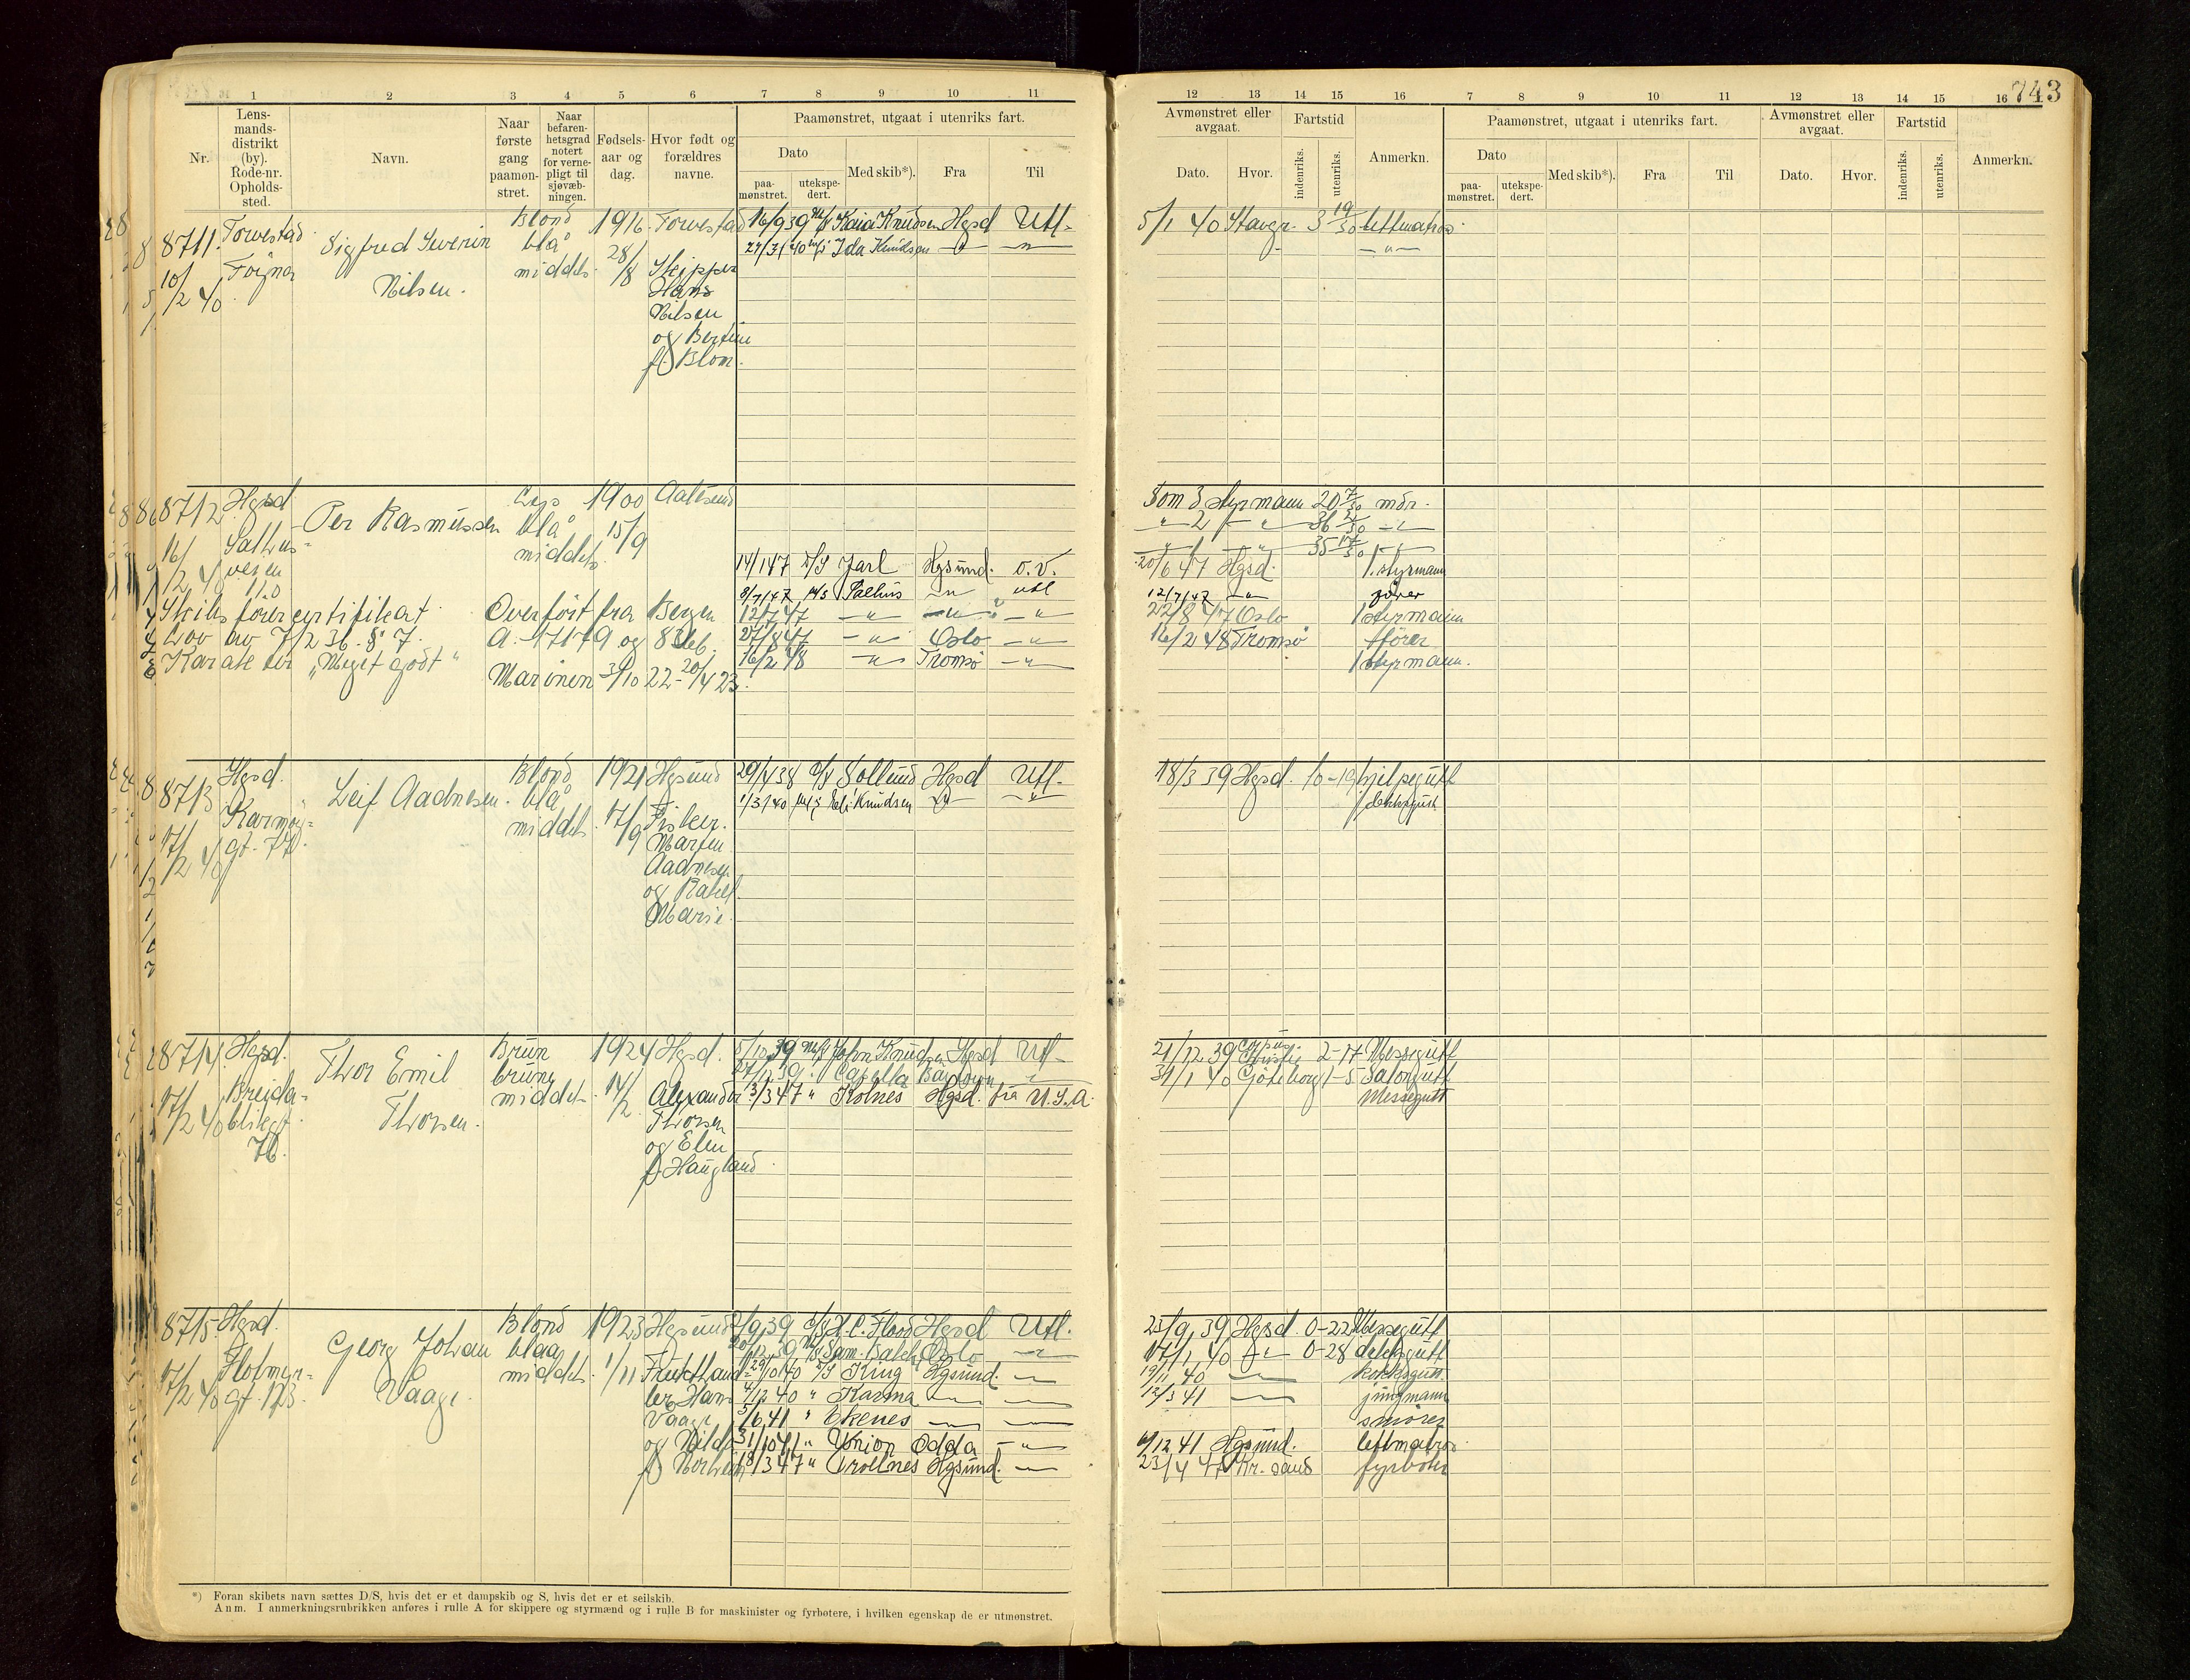 743
1 2 3 4 5 6 7 8 9 10 11
Nr.
Lens-
mands-
distrikt
(by).
Rode-nr.
Opholds-
sted.
Navn.
Naar
første
gang
paamøn-
stret.
Naar
befaren-
hetsgrad
notert
for verne-
pligt til
sjøvæb-
ningen.
Fødsels-
aar og
dag.
Hvor født og
forældres
navne.
Paamønstret, utgaat i utenriks fart.
Dato
paa-
mønstret.
utekspe-
dert.
Med skib*).
Fra
Til
12 13 14 15 16 7 8 9 10 11 12 13 14 15 16
Avmønstret eller
avgaat.
Dato.
Hvor.
Fartstid
indenriks.
utenriks.
Anmerkn.
Paamønstret, utgaat i utenriks fart.
Dato
paa-
mønstret.
utekspe-
dert.
Med skib*).
Fra
Til
Avmønstret eller
avgaat.
Dato.
Hvor.
Fartstid
indenriks.
utenriks.
Anmerkn.
8711.
10/2 40.
Torvestad
Sigfred Severin
Nilsen.
Blond
blå
middels.
1916
28/8
Torvestad
Skipper
Hans
Nilsen
og Bertine
f. Blom.
16/9 39 M/S Kaia Knudsen Hgsd Utl.
Ida Knudsen
5/1 40 Stavgr. 3 19/30 lettmatros
8712
16/2 40
Hgsd
Salhus-
veien
110
Per Rasmussen
Lys
blå
middels.
1900
15/9
Aalesund
Skibsførercertifikat
Lov av 7/2 36. § 7.
Karakter "Meget godt"
Overført fra Bergen
A.-17179 og
Marinen 3/10 22-20/4 23.
14/1 47 D/S Jarl Hgsund. o.v.
8/7/47 M/S Salhus -"- utl
12/7 47 -"- -"- -"-
27/8 47 -"- Oslo -"-
16/2 48 -"- Tromsø -"-
Som 3 styrmann 20 7/30 mdr.
20/6 47 Hgsd. 1. styrmann
12/7/47 -"- fører
22/8 47 Oslo 1 styrmann
16/2 48 Tromsø fører
1 styrmann.
8713
17/2 40
Hgsd.
Karmøy-
gt. 77.
Leif Aadnesen.
Blond
blå
middels.
1921
17/9
Hgsund
Fisker.
Martin
Aadnesen
og Rakel
Marie.
29/4 38 D/S Sollund Hgsd Utl.
1/3/40 M/S Eli Knudsen -"- -"-
18/3 39 Hgsd. 10-19 hjelpegutt
dekksgutt
8714.
17/2 40
Hgsd.
Breida-
blikgt.
76.
Thor Emil
Thorsen.
Brun
brune
middels.
1924
14/2
Hgsd.
Alexander
Thorsen
og Elen
f. Haugland.
5/10 39 M/S John Knudsen Hgsd Utl
27/12 39. Capella
3/3 47 " Kolnes Hgsd. fra U.S.A.
21/12 39 Corpus
Christie 2-17 Messegutt
31/1 40 Göteborg 1-5 Salongutt
Messegutt
8715
17/2 40
Hgsd.
Flotmyr-
gt. 123.
Georg Johan
Vaage.
Blond
blaa
middels.
1923
1/11
Hgsund
Frukthand-
ler Hans
Vaage
og Hilda
/9 39 D/S H. C. Flood Hgsd Utl.
Sam. Bakke Oslo -"-
29/10 40 D/S King Hgsund.
4/12 40 " Karma
5/6 41 " Ekenes
31/10 41 " Union Odda -"-
18/3 47 " Trollnes Hgsund.
23/9 39 Hgsd. 0-22 Messegutt
17/1 40 -"- 0-28 dekksgutt
19/11 40 kokksgutt.
12/3 41 jungmann
smører
9/12 41 Hgsund. lettmatros.
23/4 47 Kr. sand fyrbøter
*) Foran skibets navn sættes D/S, hvis det er et dampskib og S, hvis det er et seilskib.
Anm. I anmerkningsrubrikken anføres i rulle A for skippere og styrmænd og i rulle B for maskinister og fyrbøtere, i hvilken egenskap de er utmønstret.